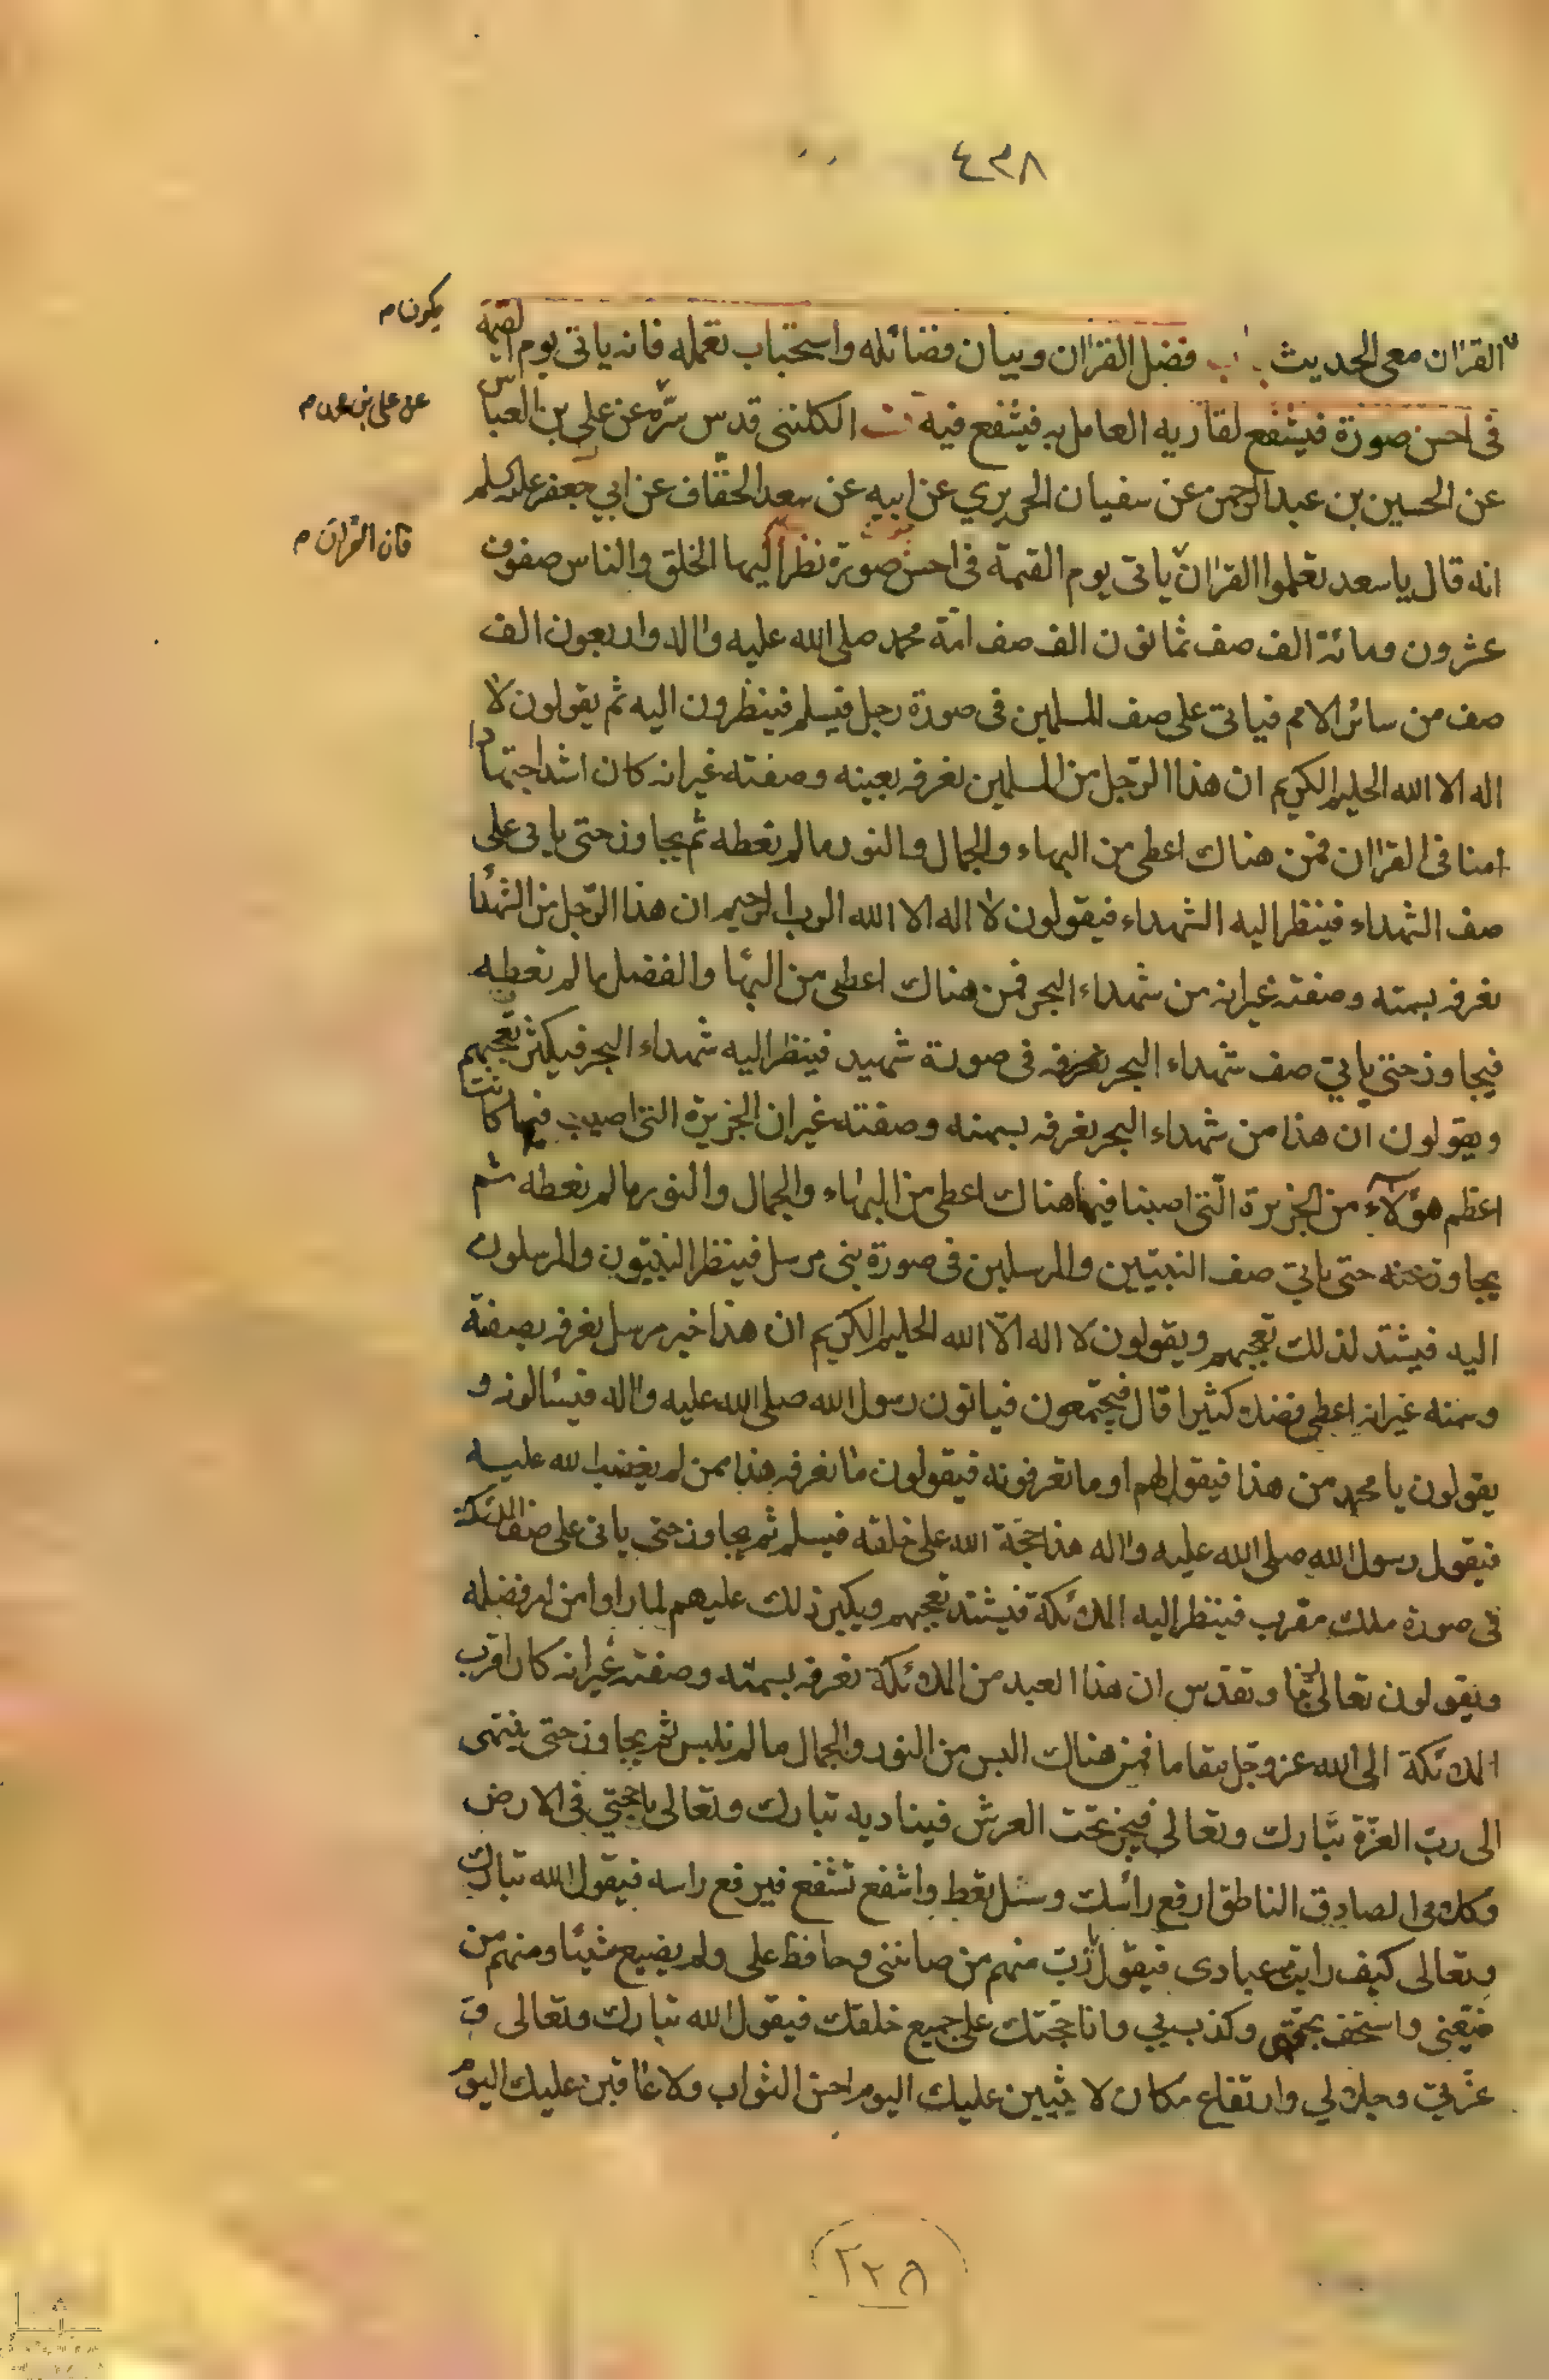 ٤٣٨
القران معى الحديث باب فضل القران وبيان فضائله واستحباب تعمله فانه ياتى يوم القيمة
يكون م
فى احسن صورة فيشفع لقاريه العامل به فيشفع فيه الكلينى قدس سره عن علي بن العباس
عن على بن محمد م
عن الحسين بن عبد الرحمن عن سفيان الحريري عن ابيه عن سعد الخفاف عن ابي جعفر عليه السلم
انه قال يا سعد تعلموا القران ياتى يوم القيمة فى احسن صورة نظر اليها الخلق والناس صفوف
فان القران م
عشرون ومائة الف صف ثمانون الف صف امة محمد صلى الله عليه واله واربعون الف
صف من سائر الامم فياتى على صف المسلمين فى صورة رجل فيسلم فينظرون اليه ثم يقولون لا
اله الا الله الحليم الكريم ان هذا الرجل من المسلمين نعرفه بعينه وصفته غير انه كان اشد اجتهادا
منا فى القران فمن هناك اعطى من البهاء والجمال والنور ما لم نعطه ثم يجاوز حتى ياتى على
صف الشهداء فينظر اليه الشهداء فيقولون لا اله الا الله الرب الرحيم ان هذا الرجل من الشهدا
نعرفه بسمته وصفته غير انه من شهداء البحر فمن هناك اعطى من البها والفضل ما لم نعطه
فيجاوز حتى ياتي صف شهداء البحر نعرفه فى صورة شهيد فينظر اليه شهداء البحر فيكثر تعجبهم
ويقولون ان هذا من شهداء البحر نعرفه بسمته وصفته غير ان الجزيرة التى اصيب فيها كانت
اعظم هؤلاء من الجزيرة التى اصبنا فيها هناك اعطى من البهاء والجمال والنور ما لم نعطه ثم
يجاوز عنه حتى ياتي صف النبيين والمرسلين فى صورة نبى مرسل فينظر النبيون والمرسلون
اليه فيشتد لذلك تعجبهم ويقولون لا اله الا الله الحليم الكريم ان هذا خير مرسل نعرفه بصفته
وسمته غير انه اعطى فضلا كثيرا قال فيجتمعون فياتون رسول الله صلى الله عليه واله فيسالونه و
يقولون يا محمد من هذا فيقول لهم او ما تعرفونه فيقولون ما نعرفه هذا ممن لم يغضب الله عليه
فيقول رسول الله صلى الله عليه واله هذا حجة الله على خلقه فيسلم ثم يجاوز حتى ياتى على صف الملئكة
فى صورة ملك مقرب فينظر اليه الملائكة فيشتد تعجبهم ويكبر ذلك عليهم لما راوا من فضله
ويقولون تعالى ربنا وتقدس ان هذا العبد من الملائكة نعرفه بسمته وصفته غير انه كان اقرب
الملائكة الى الله عز وجل مقاما فمن هناك البس من النور والجمال ما لم نلبس ثم يجاوز حتى ينتهى
الى رب العزة تبارك وتعالى فيخر تحت العرش فيناديه تبارك وتعالى يا حجتي فى الارض
وكلامى الصادق الناطق ارفع رأسك وسل تعط واشفع تشفع فيرفع راسه فيقول الله تبارك
وتعالى كيف رايت عبادى فيقول يا رب منهم من صاننى وحافظ على ولم يضيع شيئا ومنهم من
ضيعنى واستخف بحقى وكذب بي وانا حجتك على جميع خلقك فيقول الله تبارك وتعالى و
عزتي وجلالي وارتفاع مكان لاثيبن عليك اليوم احسن الثواب ولاعاقبن عليك اليوم
٢٣٨